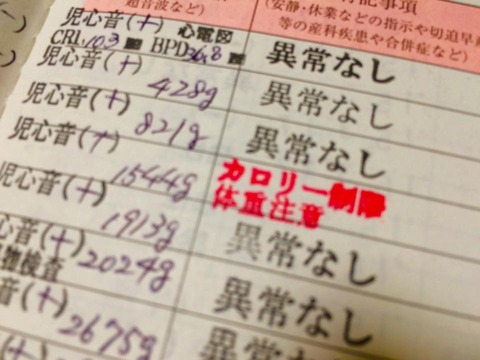 超音波など)
(安静・休業などの指示や切迫早産
等の産科疾患や合併症など)
児心音(+) 心電図
CRL 103 BPD 26.8
異常なし
児心音(+)
異常なし
児心音(+) 428g
異常なし
児心音(+) 821g
カロリー制限
体重注意
児心音(+) 1544g
異常なし
心音(+) 1913g
異常なし
検査 2024g
音(+)
異常なし
2675g